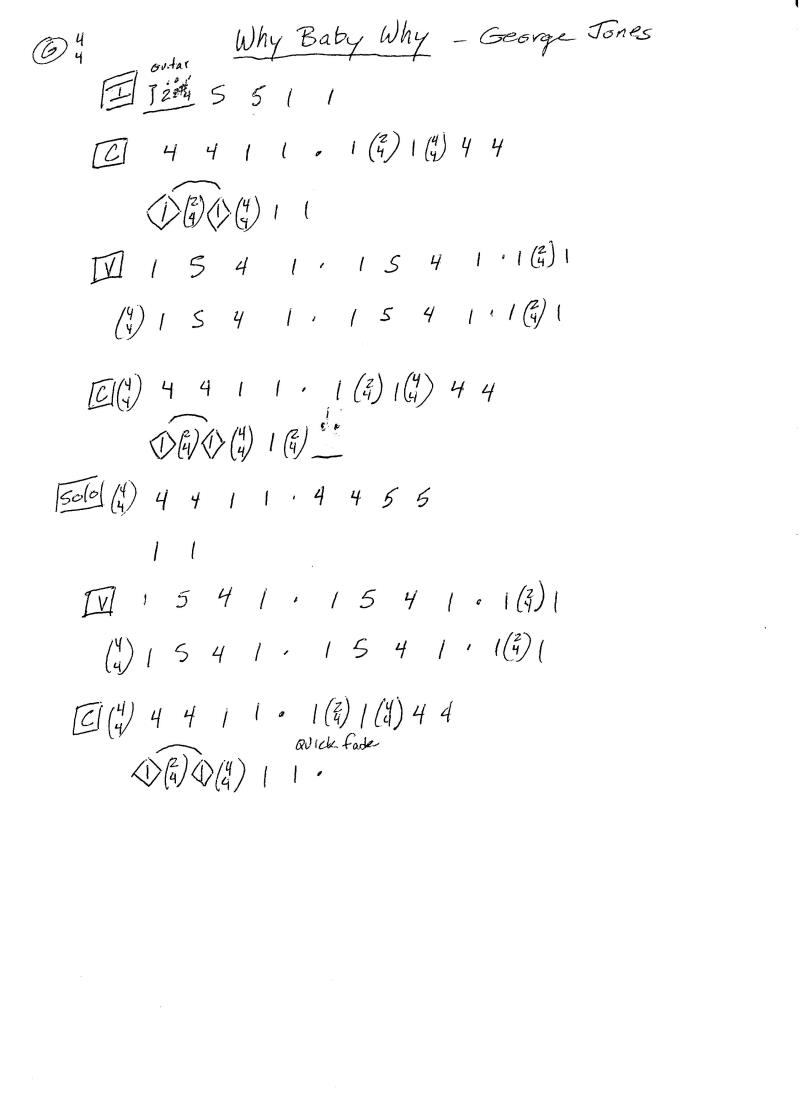 G 4/4 Why Baby Why – George Jones
Guitar
I 5 5 1 1
C 4 4 1 1 • 1 (2/4) 1 (4/4) 4 4
1 (2/4) 1 (4/4) 1 1
V 1 5 4 1 • 1 5 4 1 • 1 (2/4) 1
(4/4) 1 5 4 1 • 1 5 4 1 • 1 (2/4) 1
C (4/4) 4 4 1 1 • 1 (2/4) 1 (4/4) 4 4
1 (2/4) 1 (4/4) 1 (2/4)
Solo (4/4) 4 4 1 1 • 4 4 5 5
1 1
V 1 5 4 1 • 1 5 4 1 • 1 (2/4) 1
(4/4) 1 5 4 1 • 1 5 4 1 • 1 (2/4) 1
C (4/4) 4 4 1 1 • 1 (2/4) 1 (4/4) 4 4
Quick fade
1 (2/4) 1 (4/4) 1 1 •